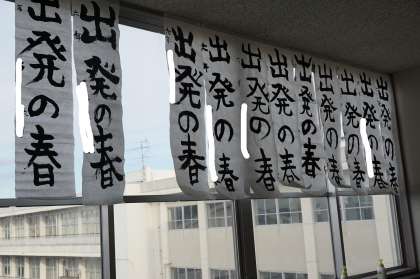 出発の春
出発の春
出発の春
出発の春
出発の春
出発の春
出発の春
出発の春
出発の春
出発の春
出発の春